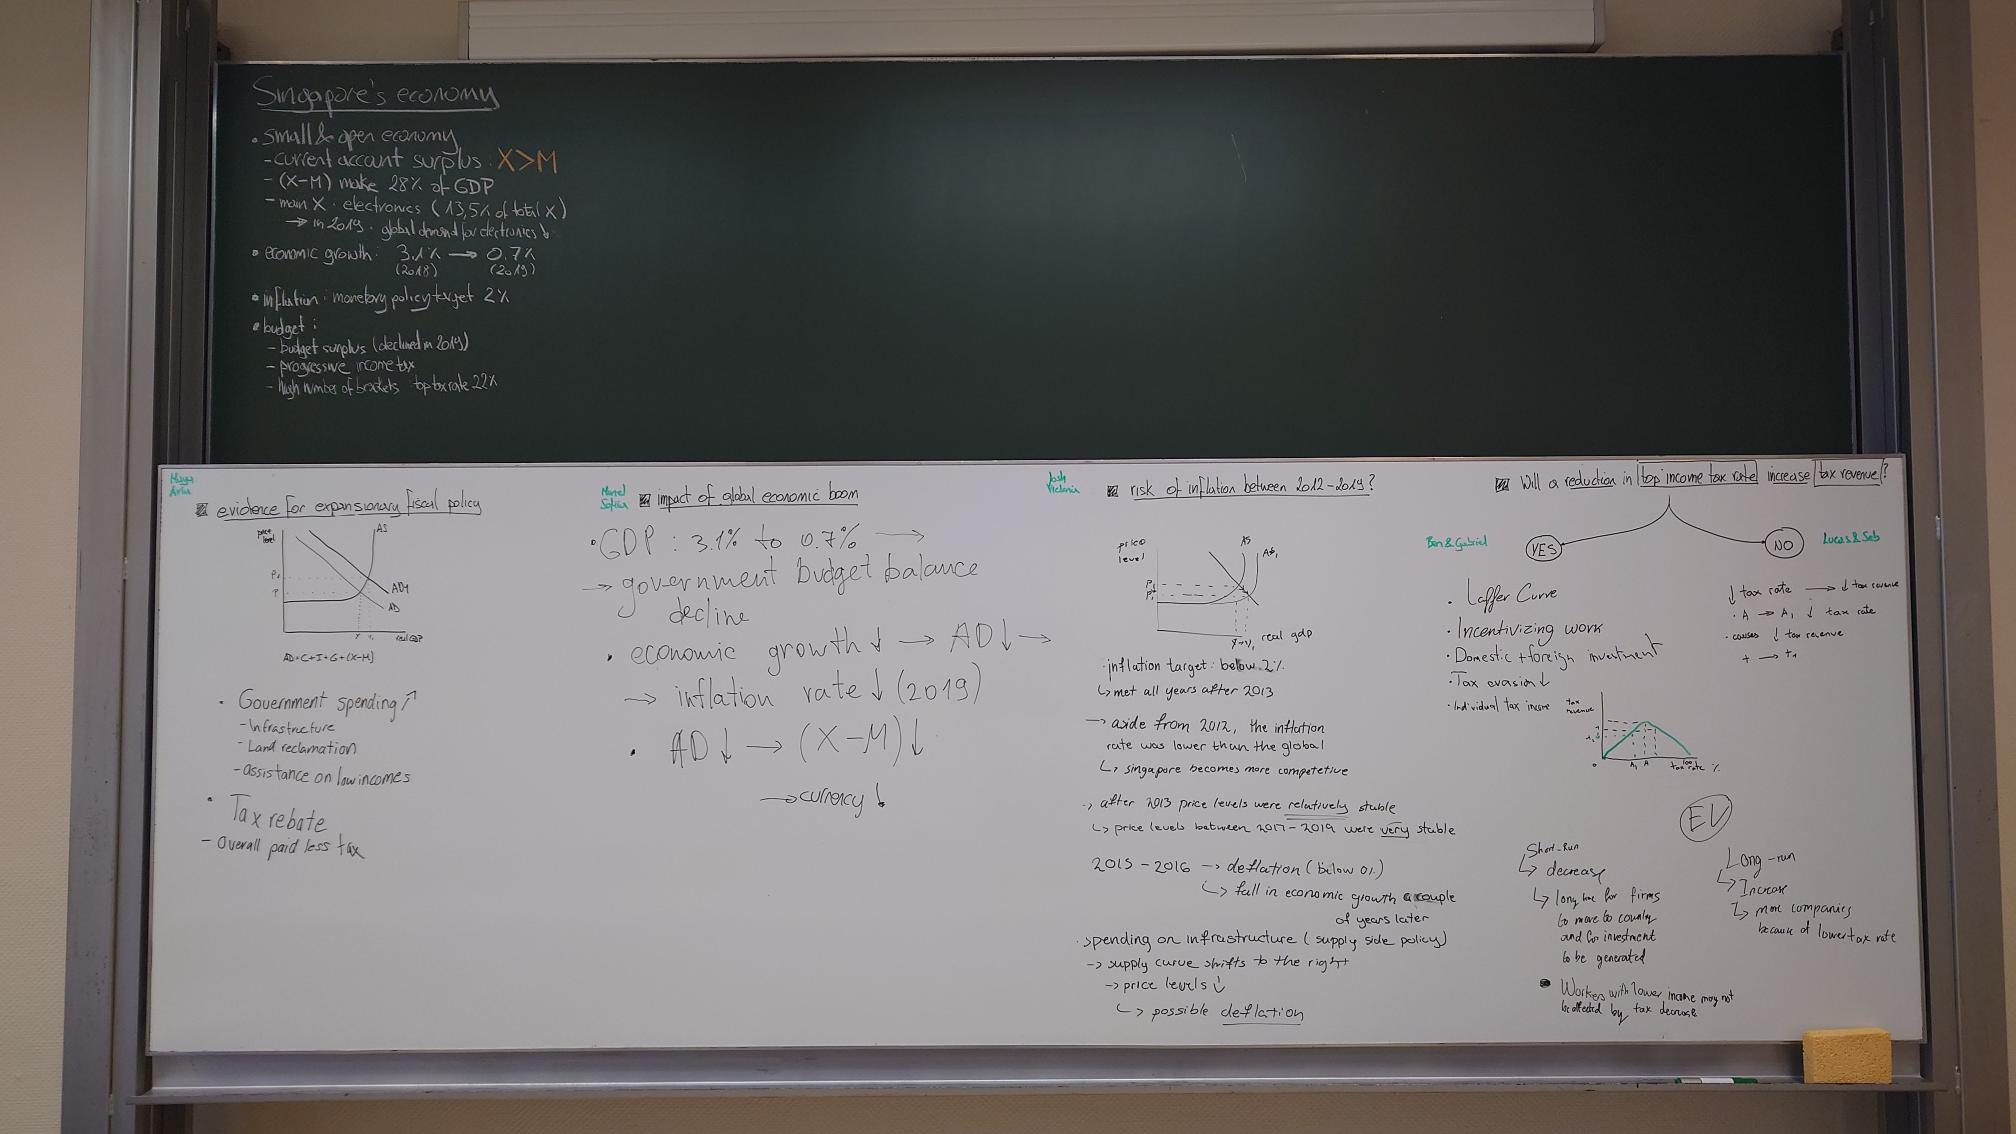 Singapore's economy
• small & open economy
- current account surplus : X>M
- (X-M) make 28% of GDP
- main X : electronics (13,5% of total X)
→ in 2019 : global demand for electronics ↓
• economic growth : 3.1% → 0.7%
(2018) (2019)
• inflation : monetary policy target 2%
• budget :
- budget surplus (declined in 2019)
- progressive income tax
- high number of brackets top tax rate 22%
evidence for expansionary fiscal policy
price level
AS
P1
P
AD1
AD
Y Y1
real GDP
AD=C+I+G+(X-M)
• Government spending ↗
- Infrastructure
- Land reclamation
- assistance on low incomes
• Tax rebate
- Overall paid less tax
Sofia
impact of global economic boom
• GDP : 3.1% to 0.7% →
→ government budget balance
decline
• economic growth ↓ → AD ↓ →
→ inflation rate ↓ (2019)
• AD ↓ → (X-M) ↓
→ currency ↓
Josh
Victoria
risk of inflation between 2012-2019?
price
level
AS
AS1
P
P1
Y→Y1
real gdp
• inflation target : below 2%
↳ met all years after 2013
→ aside from 2012, the inflation
rate was lower than the global
↳ singapore becomes more competetive
→ after 2013 price levels were relatively stable
↳ price levels between 2017-2019 were very stable
2015-2016 → deflation (below 0%)
↳ fall in economic growth a couple
of years later
• spending on infrastructure (supply side policy)
→ supply curve shifts to the right
→ price levels ↓
↳ possible deflation
Will a reduction in top income tax rate increase tax revenue?
Ben & Gabriel
YES
• Laffer Curve
• Incentivizing work
• Domestic + foreign investment
• Tax evasion ↓
• Individual tax income
tax
revenue
0
A1 A
100
tax rate %
NO
Lucas & Seb
↓ tax rate → ↓ tax revenue
• A → A1 ↓ tax rate
• causes ↓ tax revenue
t → t1
EV
Short-Run
↳ decrease
↳ long time for firms
to move to country
and for investment
to be generated
• Workers with lower income may not
be affected by tax decrease
Long-run
↳ Increase
↳ more companies
because of lower tax rate